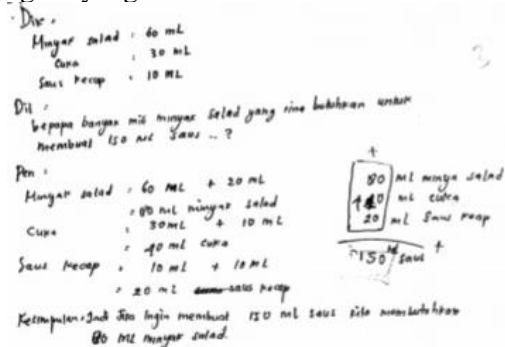 Dik :
Minyak salad : 60 mL
Cuka : 30 mL
Saus kecap : 10 mL
Dit :
bepapa banyak mili minyak salad yang rina butuhkan untuk
membuat 150 ml saus .. ?
Pen :
Minyak salad : 60 mL + 20 mL
= 80 mL minyak salad
Cuka : 30mL + 10 mL
= 40 mL cuka
Saus kecap : 10 mL + 10 mL
= 20 mL saus kecap
+
80 ml minya salad
40 ml cuka
20 ml saus kecap
+
150 ml saus
Kesimpulan : Jadi Jika Ingin membuat 150 ml saus kita membutuhkan
80 ml minyak salad.